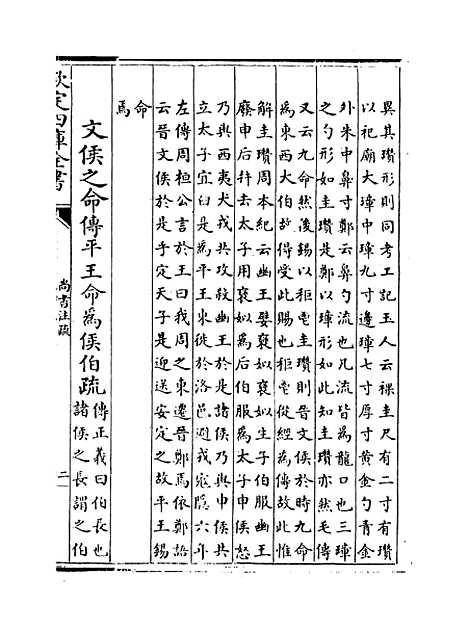 異其瓚形則同考工記玉人云祼圭尺有二寸有瓚
以祀廟大璋中璋九寸邊璋七寸厚寸黄金勺青金
外朱中鼻寸鄭云鼻勺流也凡流皆為龍口也三璋
之勺形如圭瓚是鄭以璋形如此知圭瓚亦然毛傳
又云九命然後錫以秬鬯圭瓚則晉文侯於時九命
為東西大伯故得受此賜也秬鬯從經為傳故此惟
解圭瓚周本紀云幽王嬖褒姒褒姒生子伯服幽王
廢申后并去太子用褒姒為后伯服為太子申侯怒
乃與西夷犬戎共攻殺幽王於是諸侯乃與申侯共
立太子宜臼是為平王東徙於洛邑避戎寇隱六年
左傳周桓公言於王曰我周之東遷晉鄭焉依鄭語
云晉文侯於是乎定天子是迎送安定之故平王錫
命
焉
文侯之命傳平王命為侯伯疏傳正義曰伯長也
諸侯之長謂之伯
欽定四庫全書
尚書注疏
二